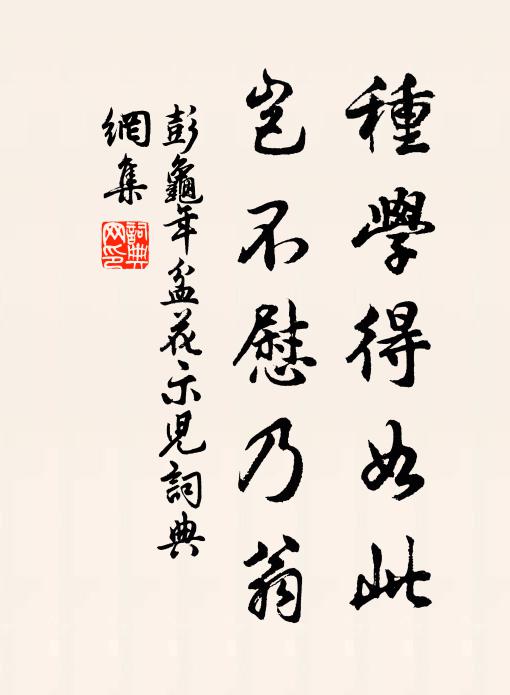 種學得如此
豈不慰乃翁
彭龜年盆花示兒詞典
網集
詞典
网印